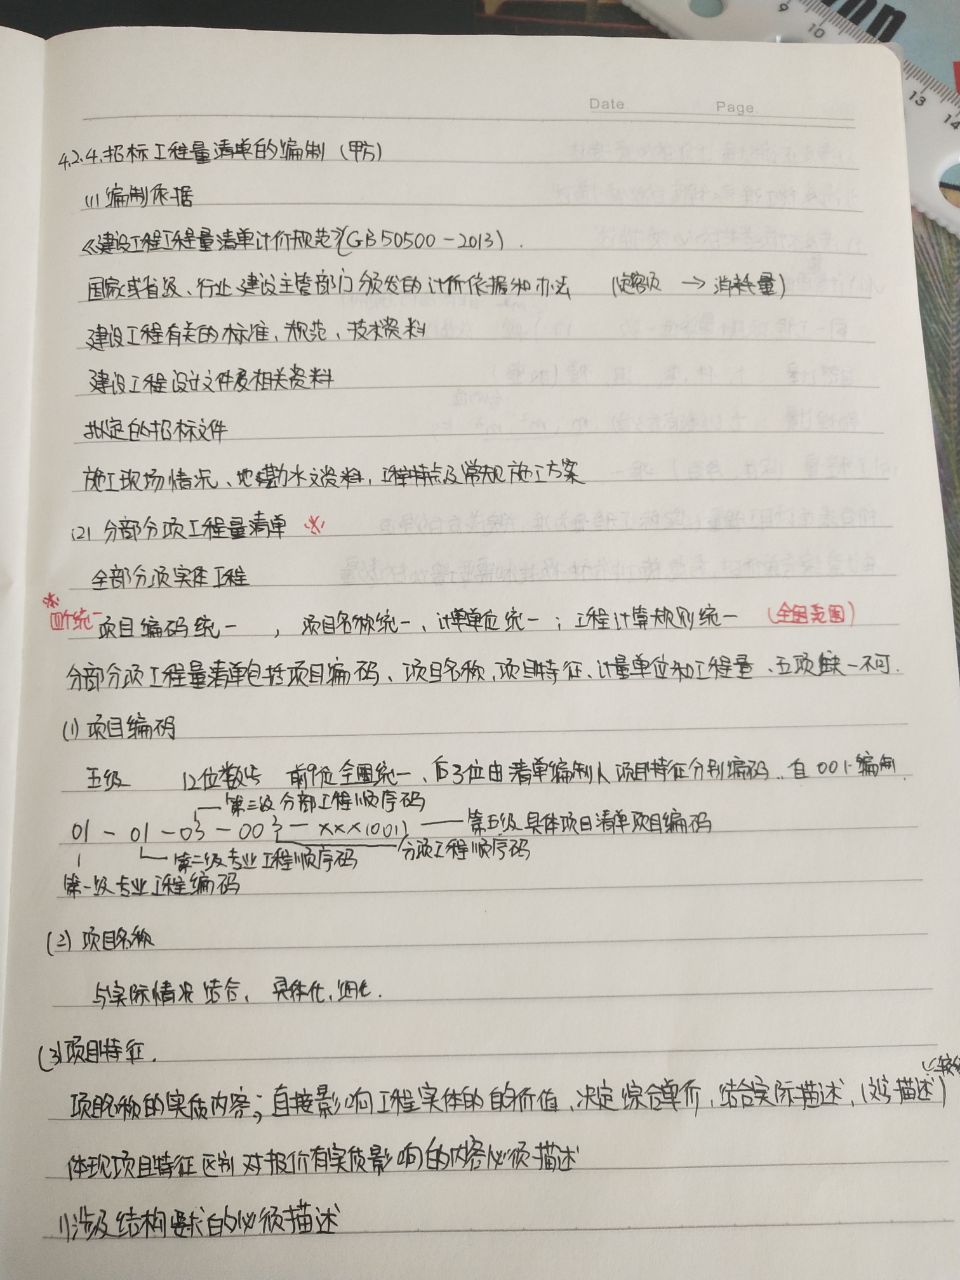 Date Page
4.2.4.招标工程量清单的编制（甲方）
(1) 编制依据
《建设工程工程量清单计价规范》(GB50500-2013).
国家或省级、行业建设主管部门颁发的计价依据和办法 （定额 → 消耗量）
建设工程有关的标准、规范、技术资料
建设工程设计文件及相关资料
拟定的招标文件
施工现场情况、地勘水文资料，工程特点及常规施工方案
(2) 分部分项工程量清单 ※
全部分项实体工程
※
四个统一 项目编码统一 ，项目名称统一、计算单位统一；工程计算规则统一 （全国范围）
分部分项工程量清单包括项目编码、项目名称、项目特征、计量单位和工程量、五项缺一不可.
(1) 项目编码
五级 12位数字 前9位全国统一、后3位由清单编制人项目特征分别编码，自001编制.
第三级分部工程顺序码
01 - 01 - 03 - 003 - XXX(001) 第五级具体项目清单项目编码
第二级专业工程顺序码 分项工程顺序码
第一级专业工程编码
(2) 项目名称
与实际情况结合，具体化，细化.
(3) 项目特征.
项目名称的实质内容；直接影响工程实体的自的价值、决定综合单价，结合实际描述、(必须描述)
体现项目特征区别 对报价有实质影响的内容必须描述
1)涉及结构要求的必须描述